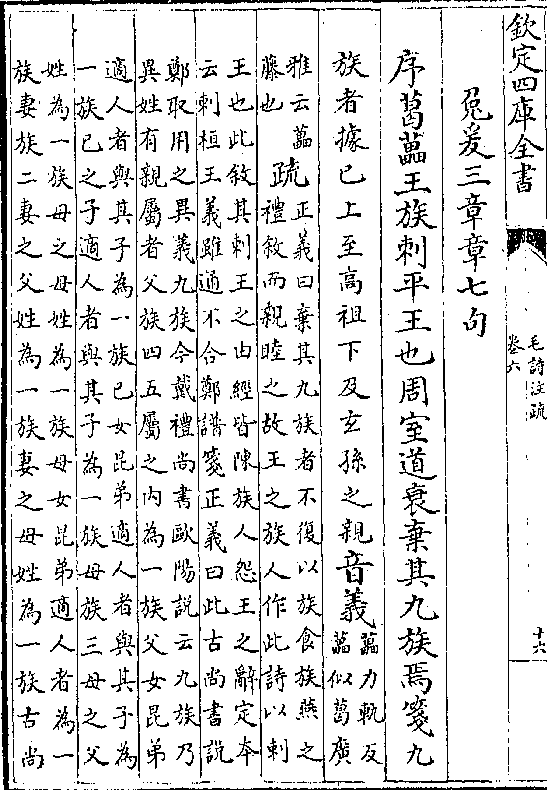 欽定四庫全書
毛詩注疏
卷六
十六
兔爰三章章七句
序葛藟王族刺平王也周室道衰棄其九族焉箋九
族者據已上至高祖下及玄孫之親音義藟力軌反
藟似葛廣
雅云藟
藤也疏正義曰棄其九族者不復以族食族燕之
禮敘而親睦之故王之族人作此詩以刺
王也此敘其刺王之由經皆陳族人怨王之辭定本
云刺桓王義雖通不合鄭譜箋正義曰此古尚書說
鄭取用之異義九族今戴禮尚書歐陽説云九族乃
異姓有親屬者父族四五屬之内為一族父女昆弟
適人者與其子為一族已女昆弟適人者與其子為
一族已之子適人者與其子為一族母族三母之父
姓為一族母之母姓為一族母女昆弟適人者為一
族妻族二妻之父姓為一族妻之母姓為一族古尚